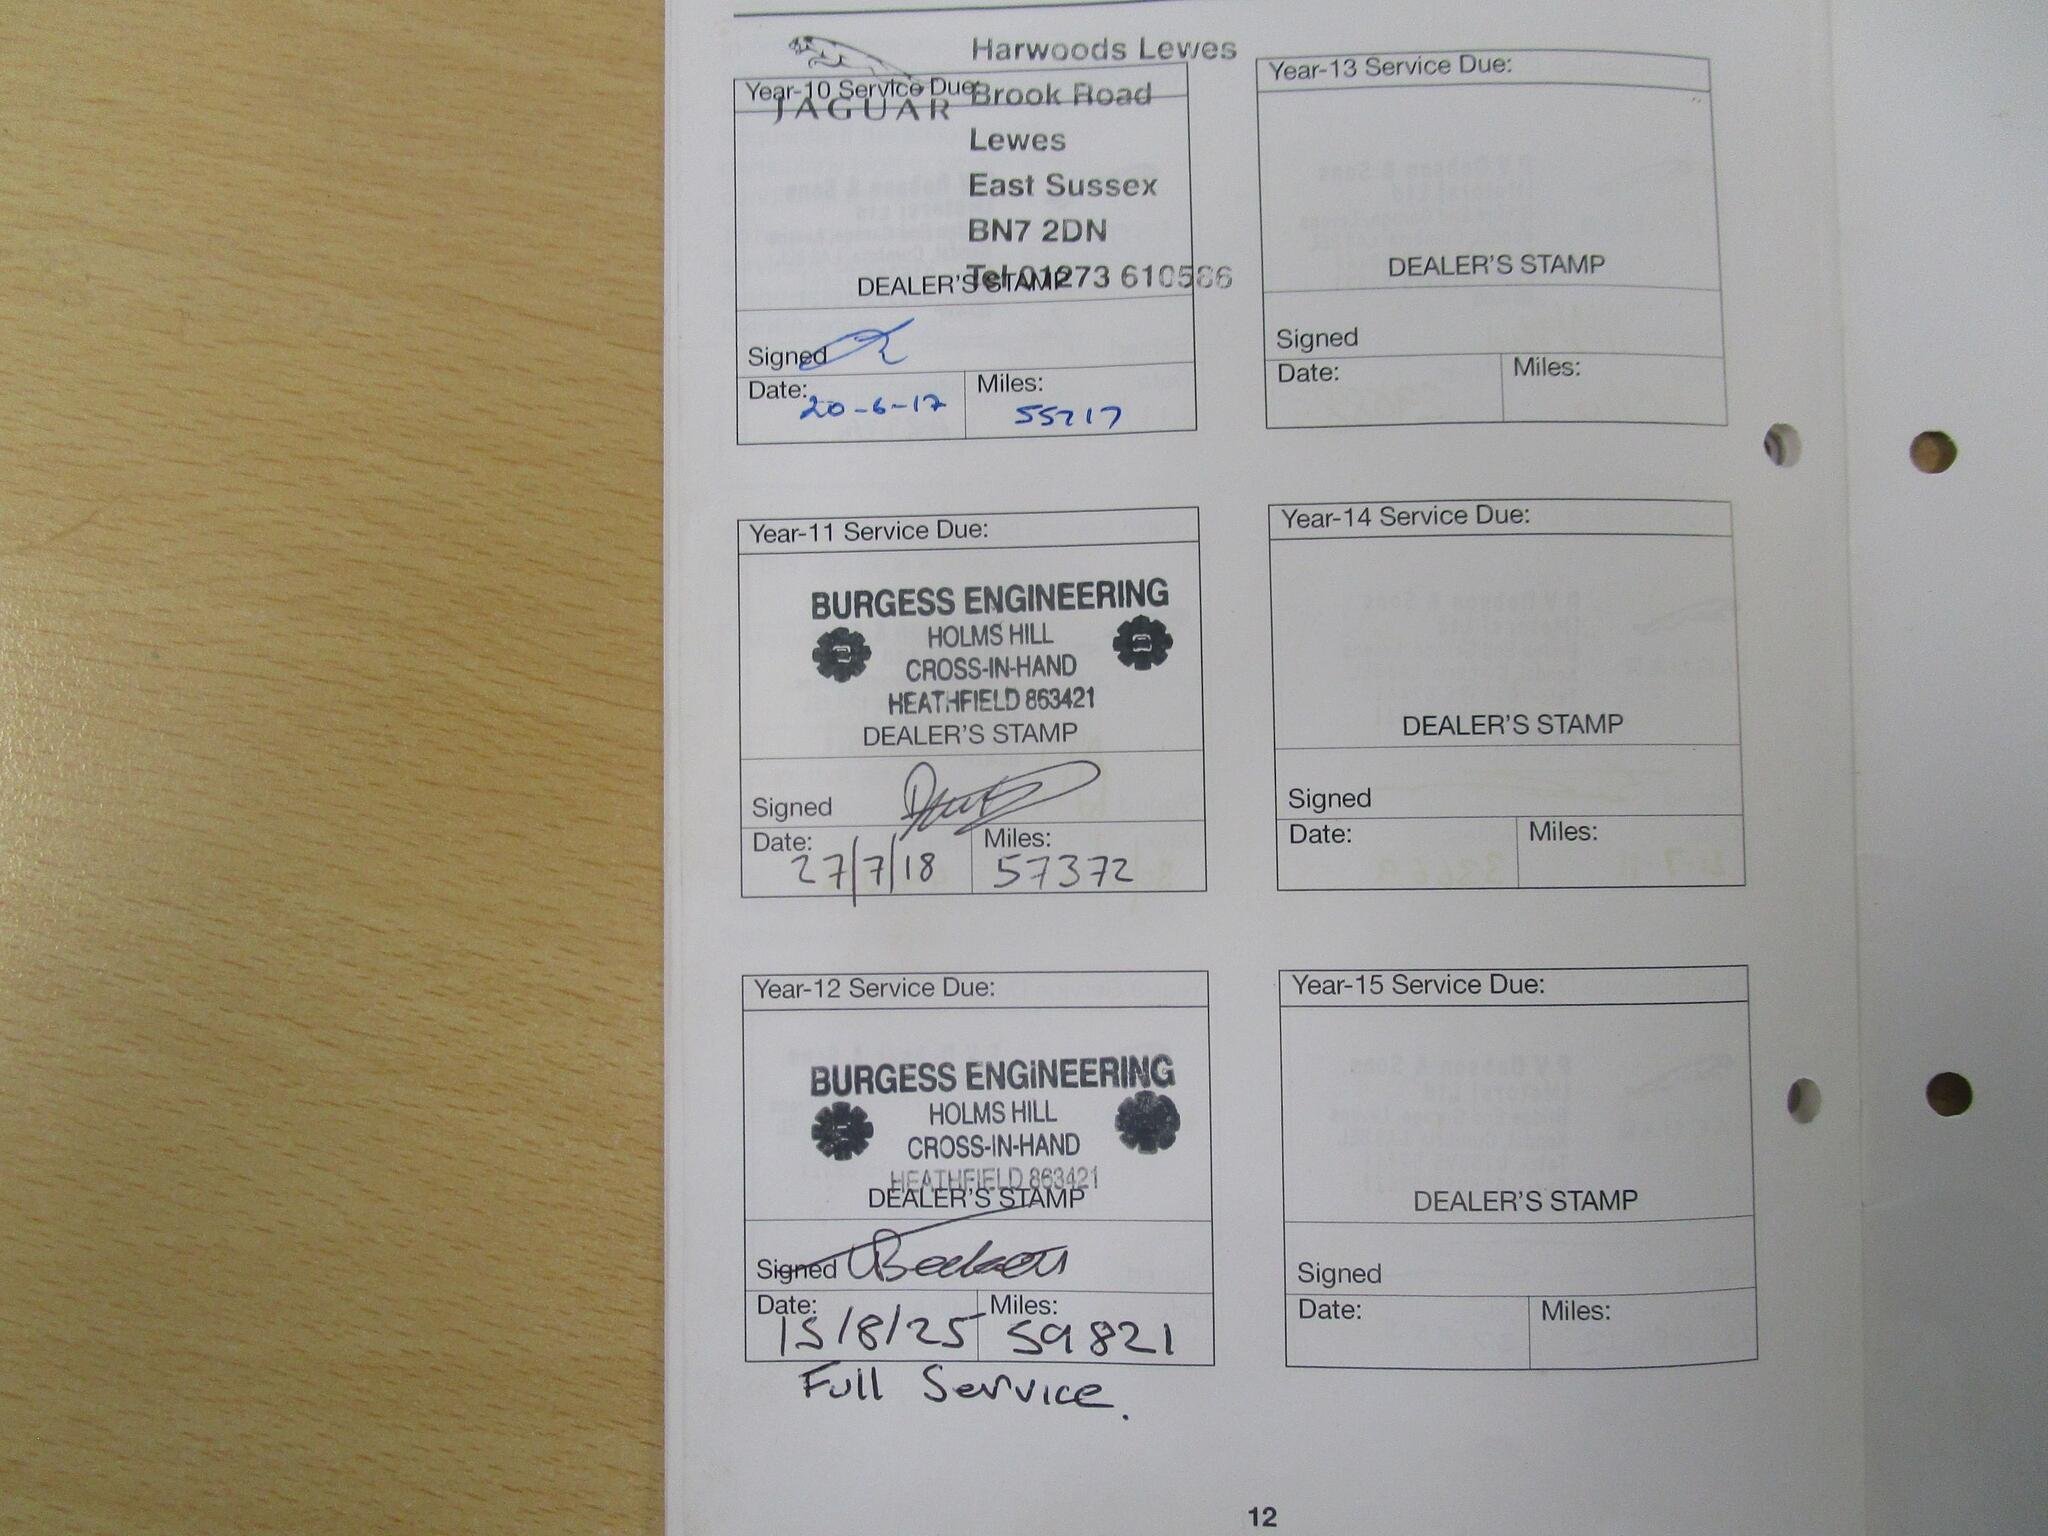 JAGUAR
Harwoods Lewes
Brook Road
Lewes
East Sussex
BN7 2DN
Tel 01273 610586
Year-10 Service Due:
DEALER'S STAMP
Signed
Date: 20-6-17
Miles: 55217
Year-11 Service Due:
BURGESS ENGINEERING
HOLMS HILL
CROSS-IN-HAND
HEATHFIELD 863421
DEALER'S STAMP
Signed
Date: 27/7/18
Miles: 57372
Year-12 Service Due:
BURGESS ENGINEERING
HOLMS HILL
CROSS-IN-HAND
HEATHFIELD 863421
DEALER'S STAMP
Signed
Date: 15/8/25
Miles: 59821
Full Service.
Year-13 Service Due:
DEALER'S STAMP
Signed
Date:
Miles:
Year-14 Service Due:
DEALER'S STAMP
Signed
Date:
Miles:
Year-15 Service Due:
DEALER'S STAMP
Signed
Date:
Miles:
12